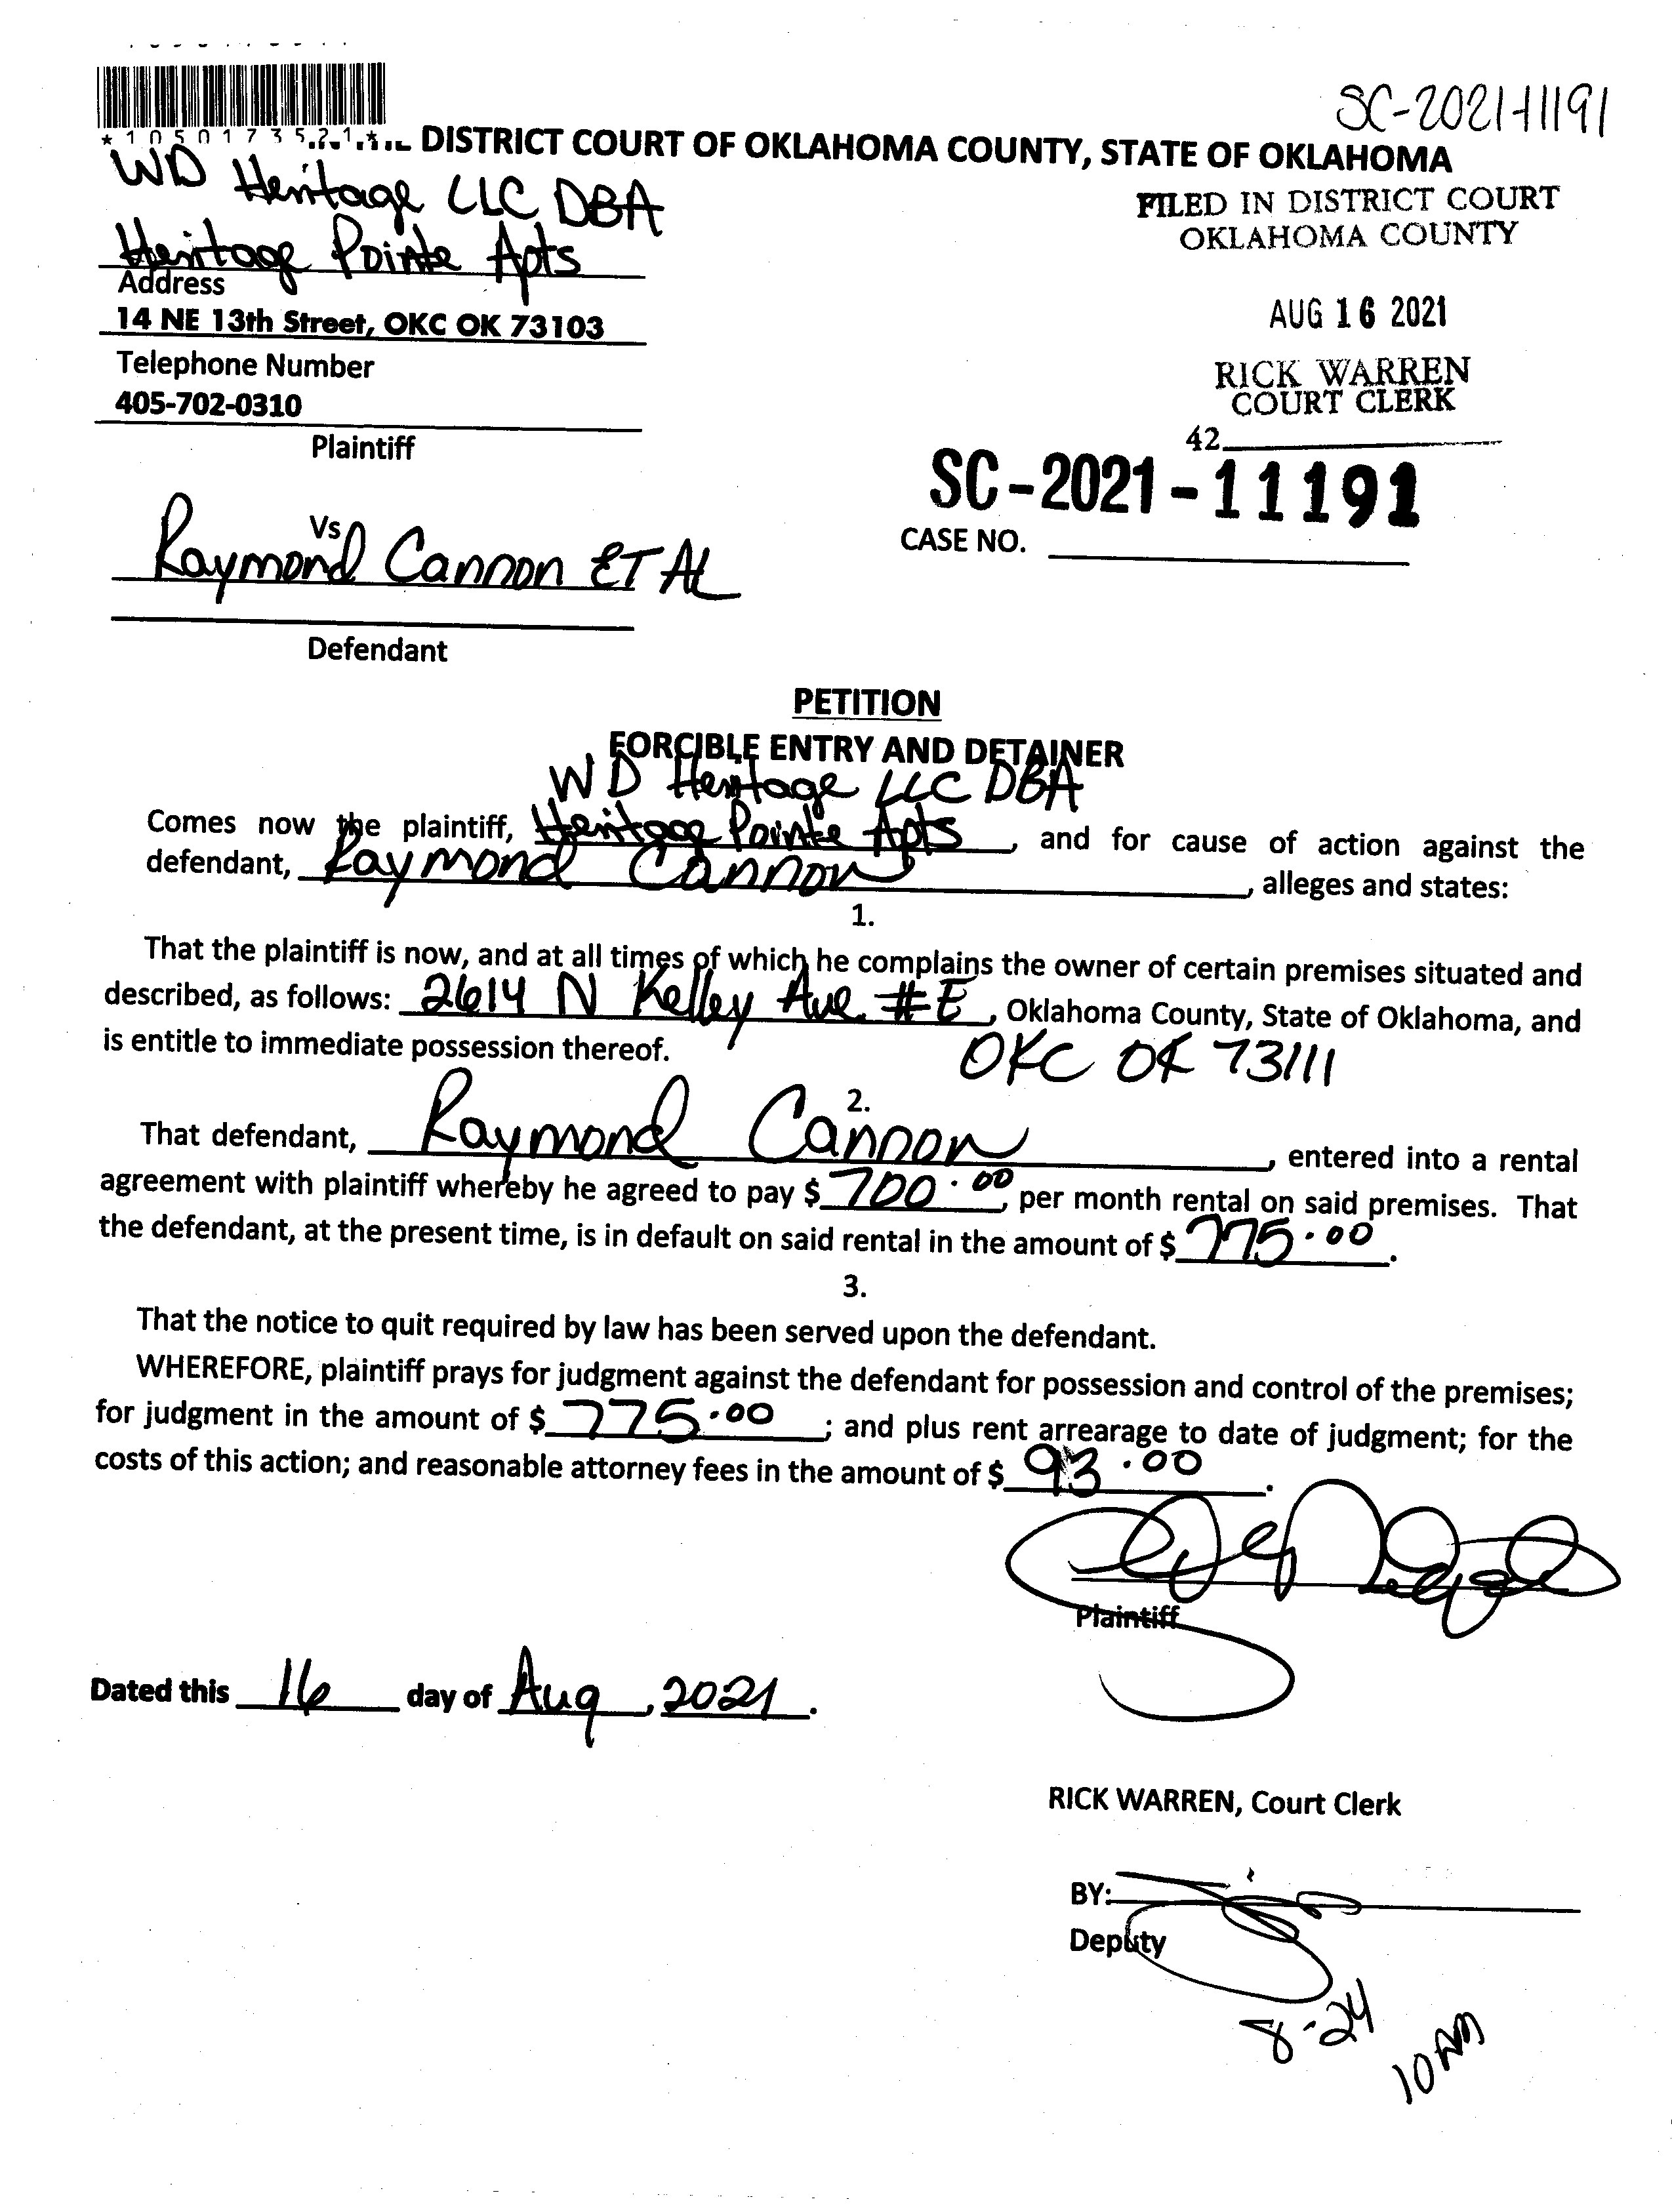 SC-2021-11191
*1050173521*
DISTRICT COURT OF OKLAHOMA COUNTY, STATE OF OKLAHOMA
WD Heritage LLC DBA
Heritage Pointe Apts
Address
14 NE 13th Street, OKC OK 73103
Telephone Number
405-702-0310
Plaintiff
FILED IN DISTRICT COURT
OKLAHOMA COUNTY
AUG 16 2021
RICK WARREN
COURT CLERK
42
SC-2021-11191
CASE NO.
Vs
Raymond Cannon ET AL
Defendant
PETITION
FORCIBLE ENTRY AND DETAINER
WD Heritage LLC DBA
Comes now the plaintiff, Heritage Pointe Apts, and for cause of action against the
defendant, Raymond Cannon, alleges and states:
1.
That the plaintiff is now, and at all times of which he complains the owner of certain premises situated and
described, as follows: 2614 N Kelley Ave. #E, Oklahoma County, State of Oklahoma, and
is entitle to immediate possession thereof. OKC OK 73111
2.
That defendant, Raymond Cannon, entered into a rental
agreement with plaintiff whereby he agreed to pay $ 700.00, per month rental on said premises. That
the defendant, at the present time, is in default on said rental in the amount of $ 775.00.
3.
That the notice to quit required by law has been served upon the defendant.
WHEREFORE, plaintiff prays for judgment against the defendant for possession and control of the premises;
for judgment in the amount of $ 775.00; and plus rent arrearage to date of judgment; for the
costs of this action; and reasonable attorney fees in the amount of $ 93.00.
Plaintiff
Dated this 16 day of Aug, 2021.
RICK WARREN, Court Clerk
BY:
Deputy
8-24
10 AM